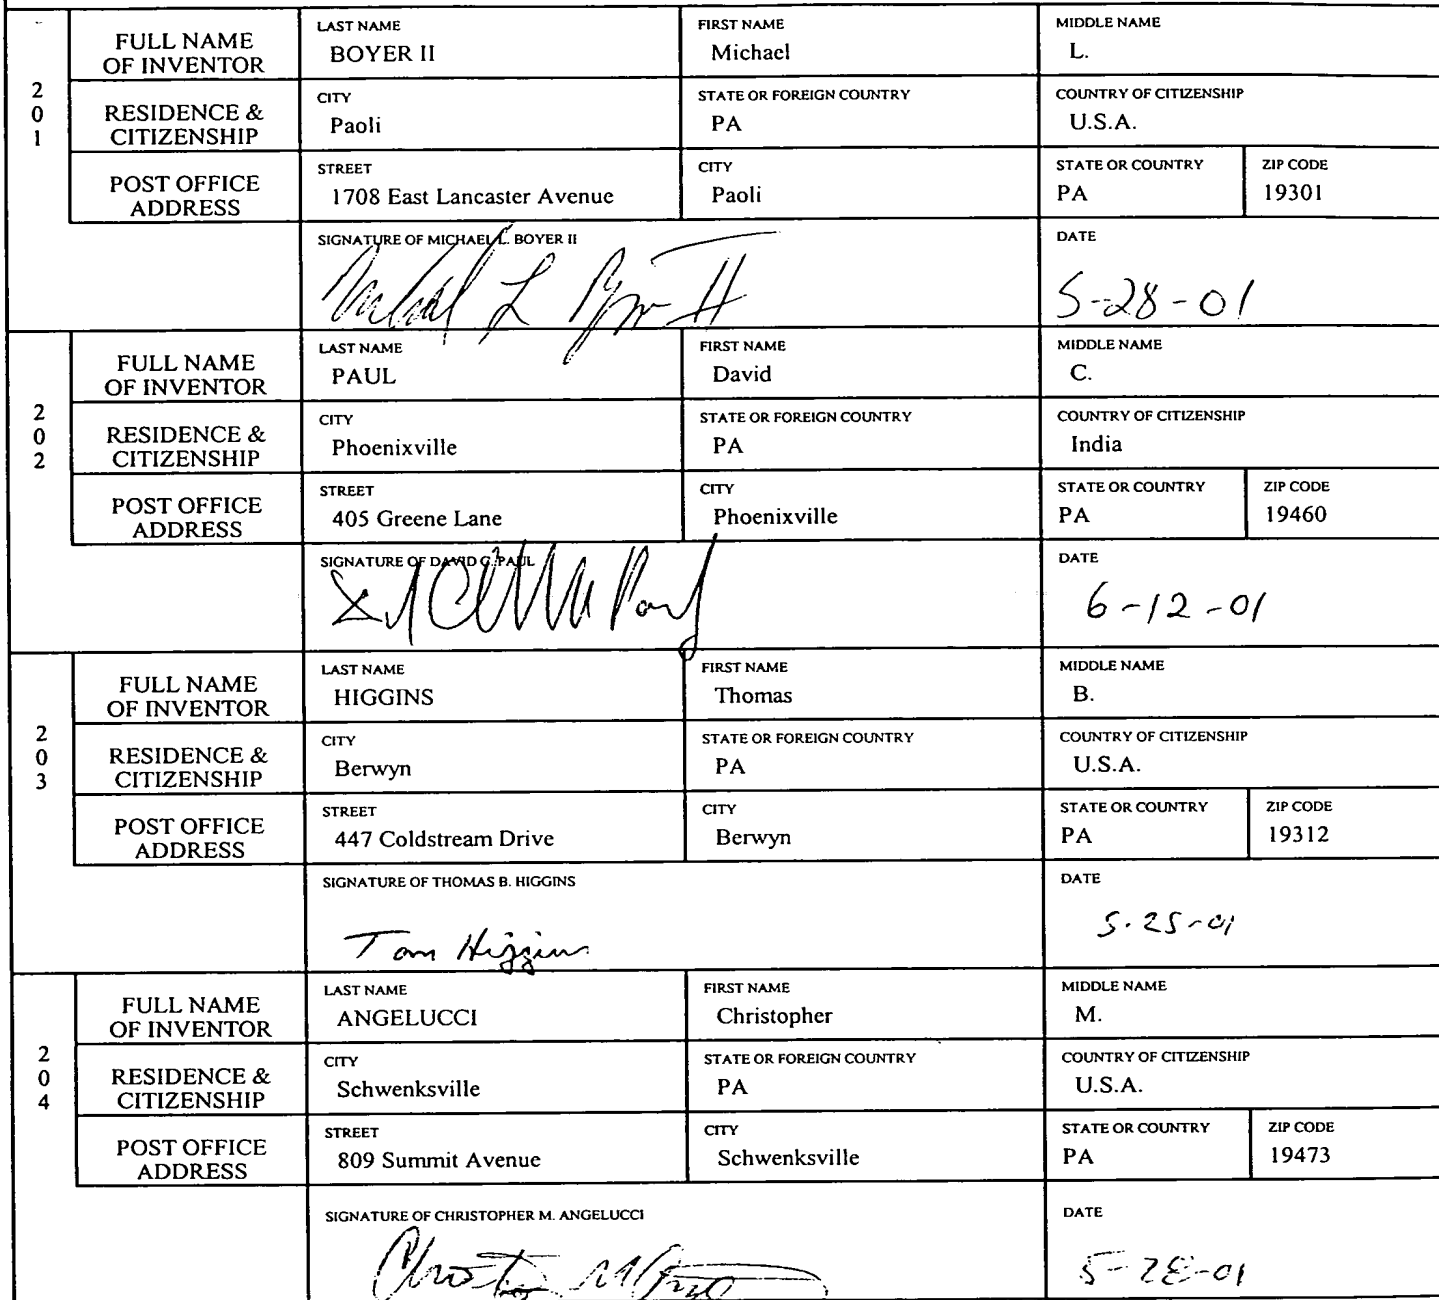 201
FULL NAME OF INVENTOR
LAST NAME
BOYER II
FIRST NAME
Michael
MIDDLE NAME
L.
RESIDENCE & CITIZENSHIP
CITY
Paoli
STATE OR FOREIGN COUNTRY
PA
COUNTRY OF CITIZENSHIP
U.S.A.
POST OFFICE ADDRESS
STREET
1708 East Lancaster Avenue
CITY
Paoli
STATE OR COUNTRY
PA
ZIP CODE
19301
SIGNATURE OF MICHAEL L. BOYER II
Michael L Boyer II
DATE
5-28-01
202
FULL NAME OF INVENTOR
LAST NAME
PAUL
FIRST NAME
David
MIDDLE NAME
C.
RESIDENCE & CITIZENSHIP
CITY
Phoenixville
STATE OR FOREIGN COUNTRY
PA
COUNTRY OF CITIZENSHIP
India
POST OFFICE ADDRESS
STREET
405 Greene Lane
CITY
Phoenixville
STATE OR COUNTRY
PA
ZIP CODE
19460
SIGNATURE OF DAVID C. PAUL
Paul
DATE
6-12-01
203
FULL NAME OF INVENTOR
LAST NAME
HIGGINS
FIRST NAME
Thomas
MIDDLE NAME
B.
RESIDENCE & CITIZENSHIP
CITY
Berwyn
STATE OR FOREIGN COUNTRY
PA
COUNTRY OF CITIZENSHIP
U.S.A.
POST OFFICE ADDRESS
STREET
447 Coldstream Drive
CITY
Berwyn
STATE OR COUNTRY
PA
ZIP CODE
19312
SIGNATURE OF THOMAS B. HIGGINS
Tom Higgins
DATE
5-25-01
204
FULL NAME OF INVENTOR
LAST NAME
ANGELUCCI
FIRST NAME
Christopher
MIDDLE NAME
M.
RESIDENCE & CITIZENSHIP
CITY
Schwenksville
STATE OR FOREIGN COUNTRY
PA
COUNTRY OF CITIZENSHIP
U.S.A.
POST OFFICE ADDRESS
STREET
809 Summit Avenue
CITY
Schwenksville
STATE OR COUNTRY
PA
ZIP CODE
19473
SIGNATURE OF CHRISTOPHER M. ANGELUCCI
DATE
5-28-01